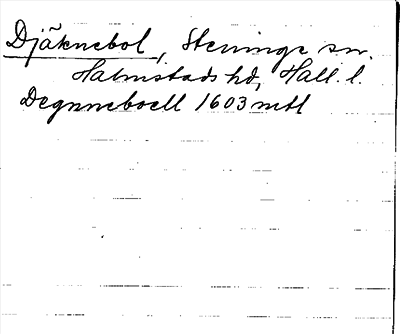 Djäknebol, Steninge sn.
Halmstads hd, Hall. l.
Degnneboell 1603 mtl